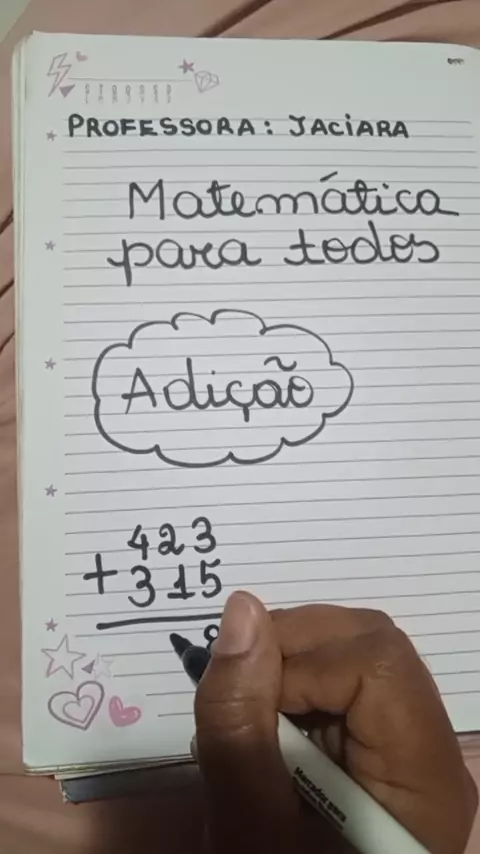 PROFESSORA: JACIARA
Matemática
para todos
Adição
423
+ 315
8
Marcador para